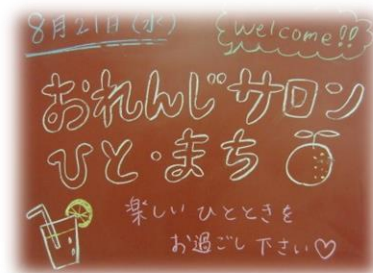 8月21日(水)
Welcome!!
おれんじサロン
ひと・まち
楽しいひとときを
お過ごし下さい♡